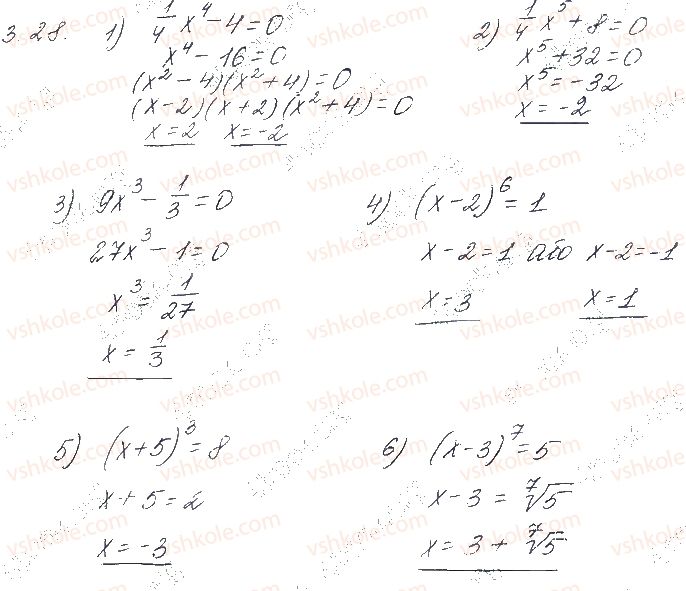 3.28. 1) 1/4 x⁴ - 4 = 0
x⁴ - 16 = 0
(x² - 4)(x² + 4) = 0
(x - 2)(x + 2)(x² + 4) = 0
x = 2 x = -2
2) 1/4 x⁵ + 8 = 0
x⁵ + 32 = 0
x⁵ = -32
x = -2
3) 9x³ - 1/3 = 0
27x³ - 1 = 0
x³ = 1/27
x = 1/3
4) (x - 2)⁶ = 1
x - 2 = 1 або x - 2 = -1
x = 3 x = 1
5) (x + 5)³ = 8
x + 5 = 2
x = -3
6) (x - 3)⁷ = 5
x - 3 = ⁷√5
x = 3 + ⁷√5
vshkole.com